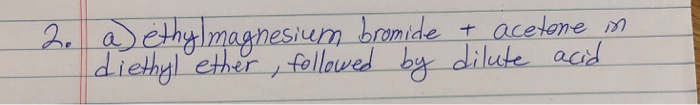 2. a) ethylmagnesium bromide + acetone in
diethyl ether, followed by dilute acid